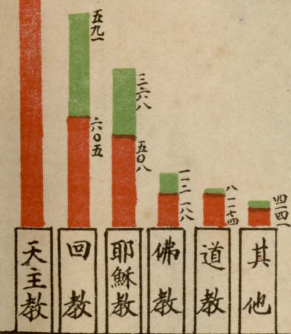 五九一
六〇五
三六八
五〇八
一八八
一七四
天主教
回教
耶穌教
佛教
道教
其他